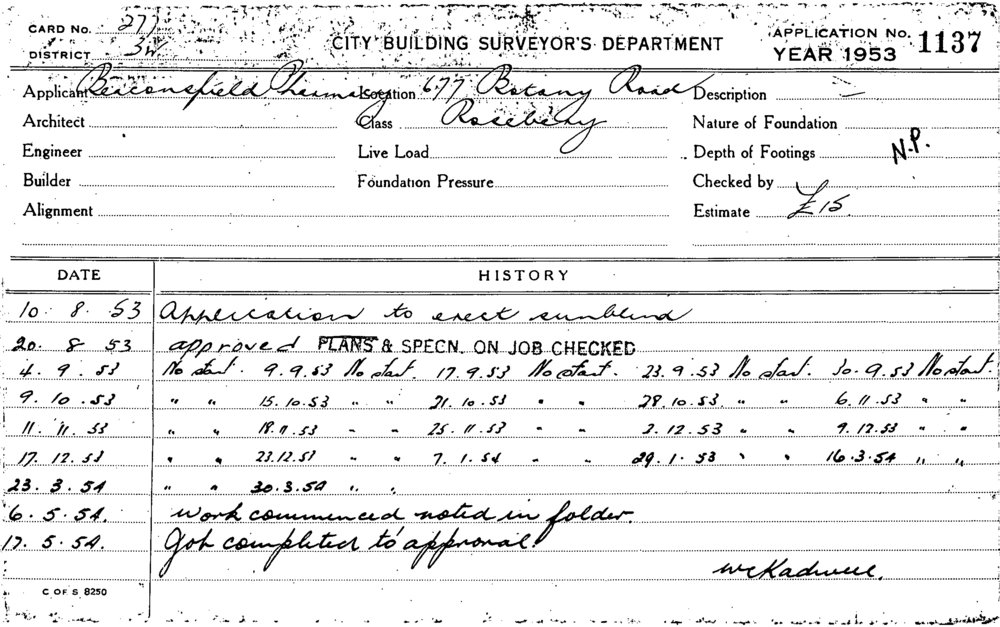 CARD No. 277
DISTRICT 3W
CITY BUILDING SURVEYOR'S DEPARTMENT
APPLICATION No. 1137
YEAR 1953
Applicant Beaconsfield Pharmacy Location 677 Botany Road Description
Architect Class Rosebery Nature of Foundation
Engineer Live Load Depth of Footings N.P.
Builder Foundation Pressure Checked by
Alignment Estimate £15.
DATE HISTORY
10. 8. 53 Application to erect sunblind
20. 8 53 approved PLANS & SPECN. ON JOB CHECKED
4. 9. 53 No start. 9.9.53 No start. 17.9.53 No start. 23.9.53 No start. 30.9.53 No start.
9. 10. 53 " " 15.10.53 " " 21.10.53 " " 28.10.53. " " 6.11.53 " "
11. 11. 53 " " 18.11.53 " " 25.11.53 " " 2.12.53 " " 9.12.53 " "
17. 12. 53 " " 23.12.53 " " 7.1.54 " " 29.1.53 " " 16.3.54 " "
23. 3. 54 " " 30.3.54 " "
6. 5. 54. work commenced noted in folder.
17. 5. 54. Job completed to approval.
C OF S 8250